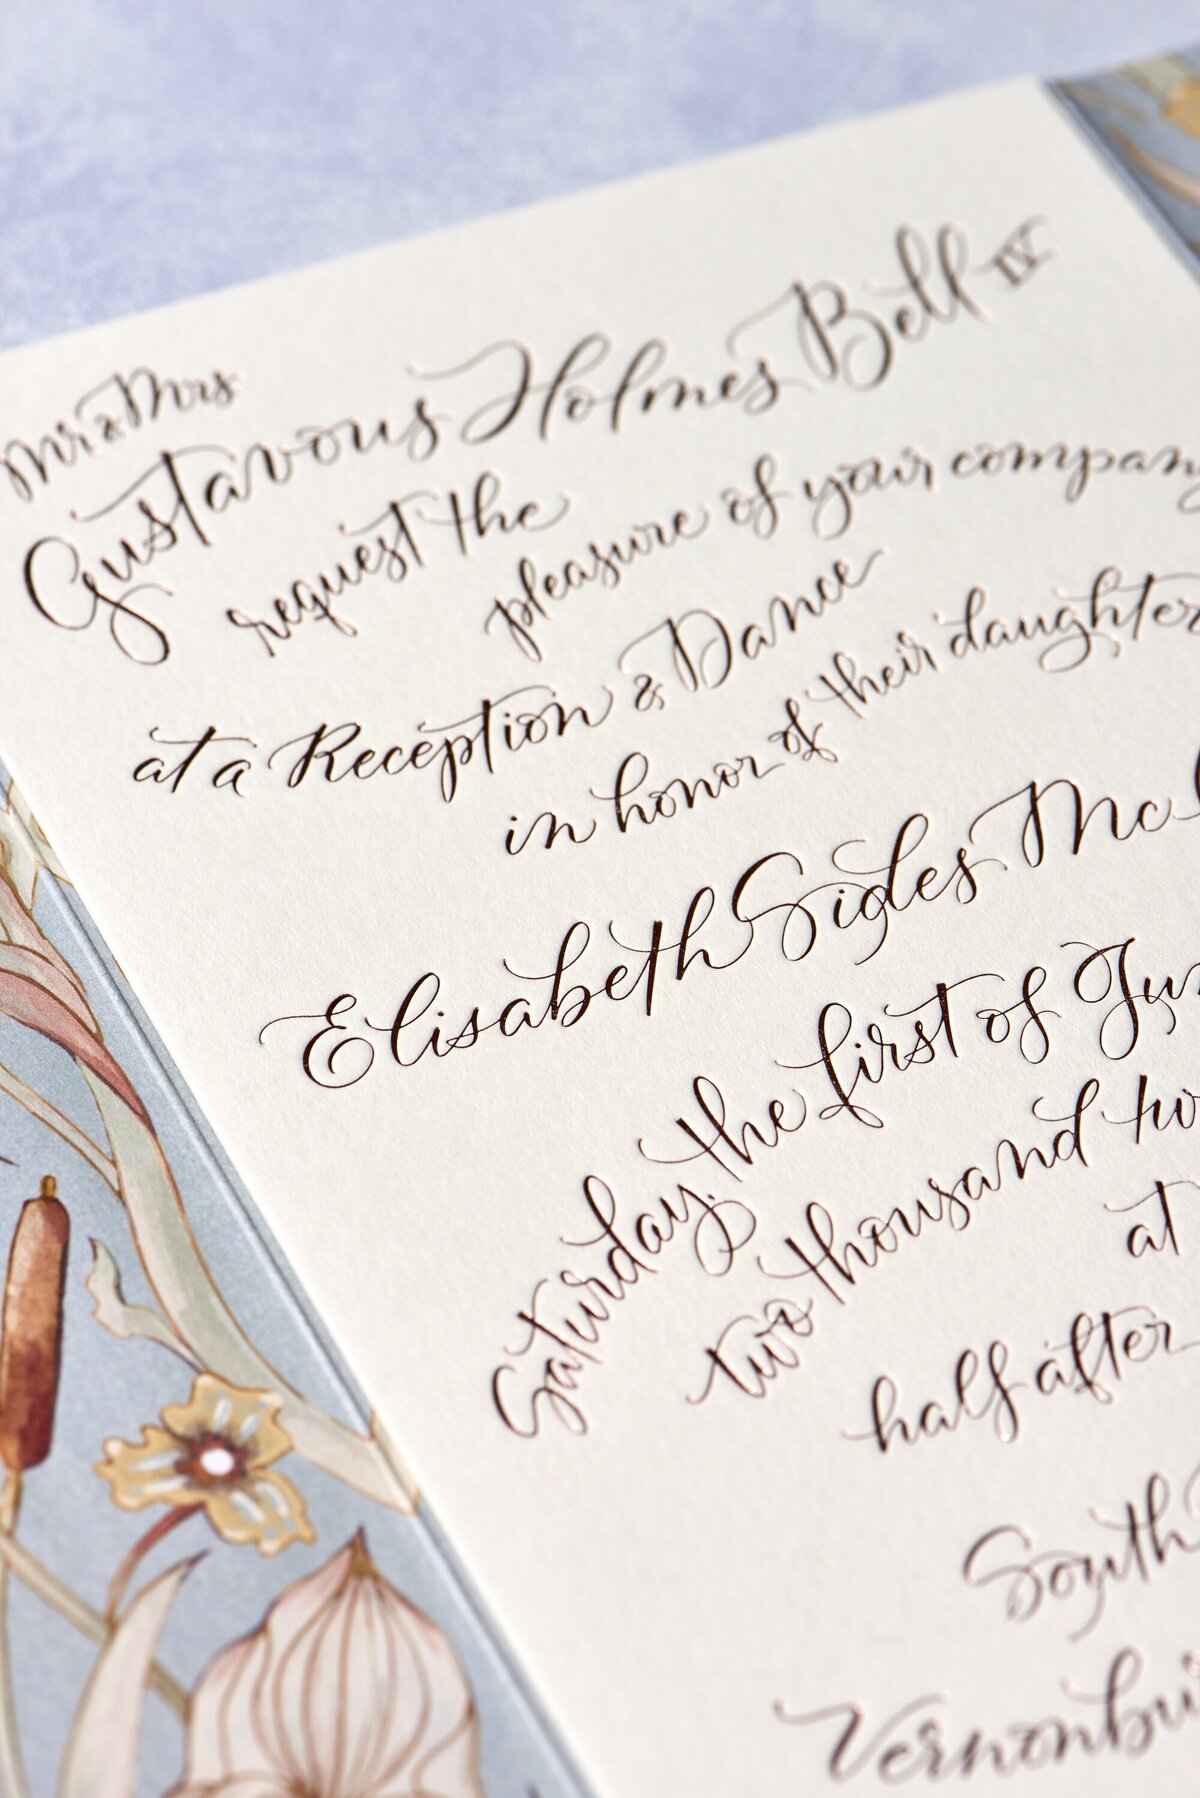 Mr & Mrs
Gustavous Holmes Bell IV
request the
pleasure of your company
at a Reception & Dance
in honor of their daughter
Elisabeth Sigles
Saturday, the first of
two thousand
at
half after
South